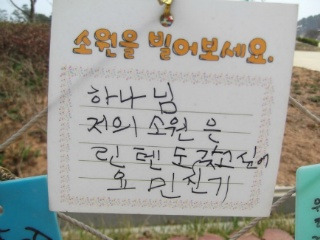 소원을 빌어보세요.
하나님
저의 소원은
린텐도 갖고싶어
요 인진기